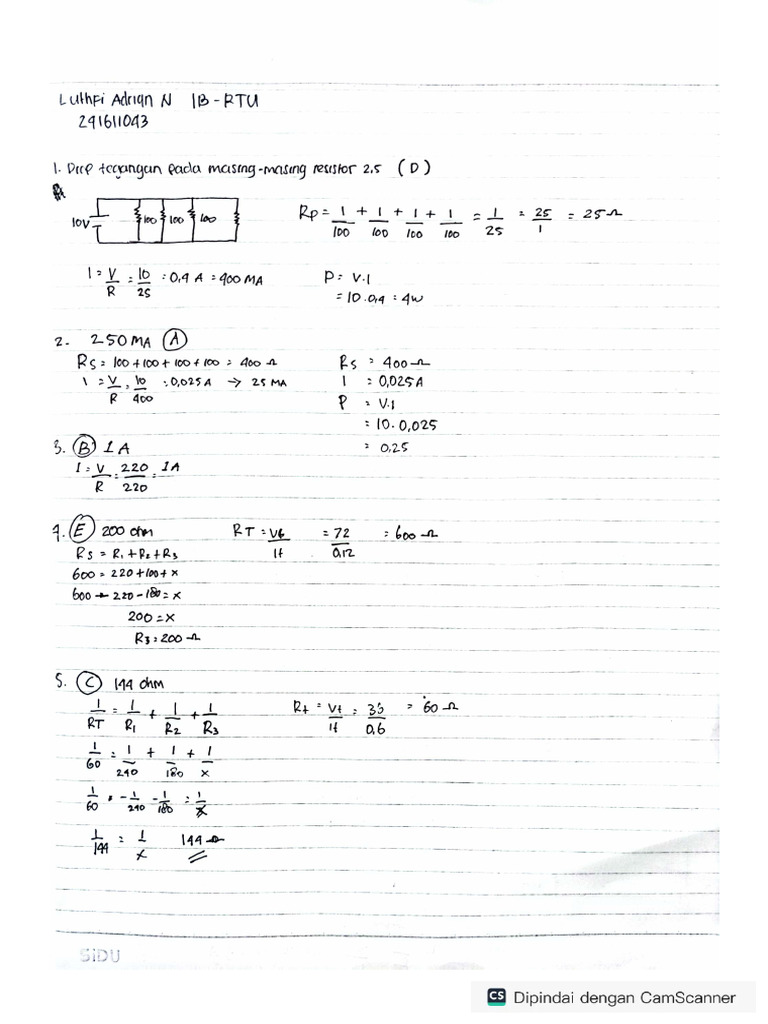 Luthfi Adrian N 1B-RTU
241611043
1. Drop tegangan pada masing-masing resistor 2.5 (D)
10V 100 100 100
Rp = 1/100 + 1/100 + 1/100 + 1/100 = 1/25 = 25/1 = 25 Ω
I = V/R = 10/25 = 0,4 A = 400 MA
P = V.I
= 10.0,4 = 4w
2. 250 MA (A)
Rs = 100 + 100 + 100 + 100 = 400 Ω
I = V/R = 10/400 = 0,025 A → 25 MA
Rs = 400 Ω
I = 0,025 A
P = V.I
= 10.0,025
= 0,25
3. (B) 1 A
I = V/R = 220/220 = 1A
4. (E) 200 ohm
RT = Vt/It = 72/0,12 = 600 Ω
Rs = R1 + R2 + R3
600 = 220 + 100 + x
600 - 220 - 180 = x
200 = x
R3 = 200 Ω
5. (C) 144 ohm
1/RT = 1/R1 + 1/R2 + 1/R3
Rt = Vt/It = /0,6 = 60 Ω
1/60 = 1/240 + 1/180 + 1/x
1/60 - 1/240 - 1/180 = 1/x
1/144 = 1/x 144 Ω
SiDU
CS Dipindai dengan CamScanner